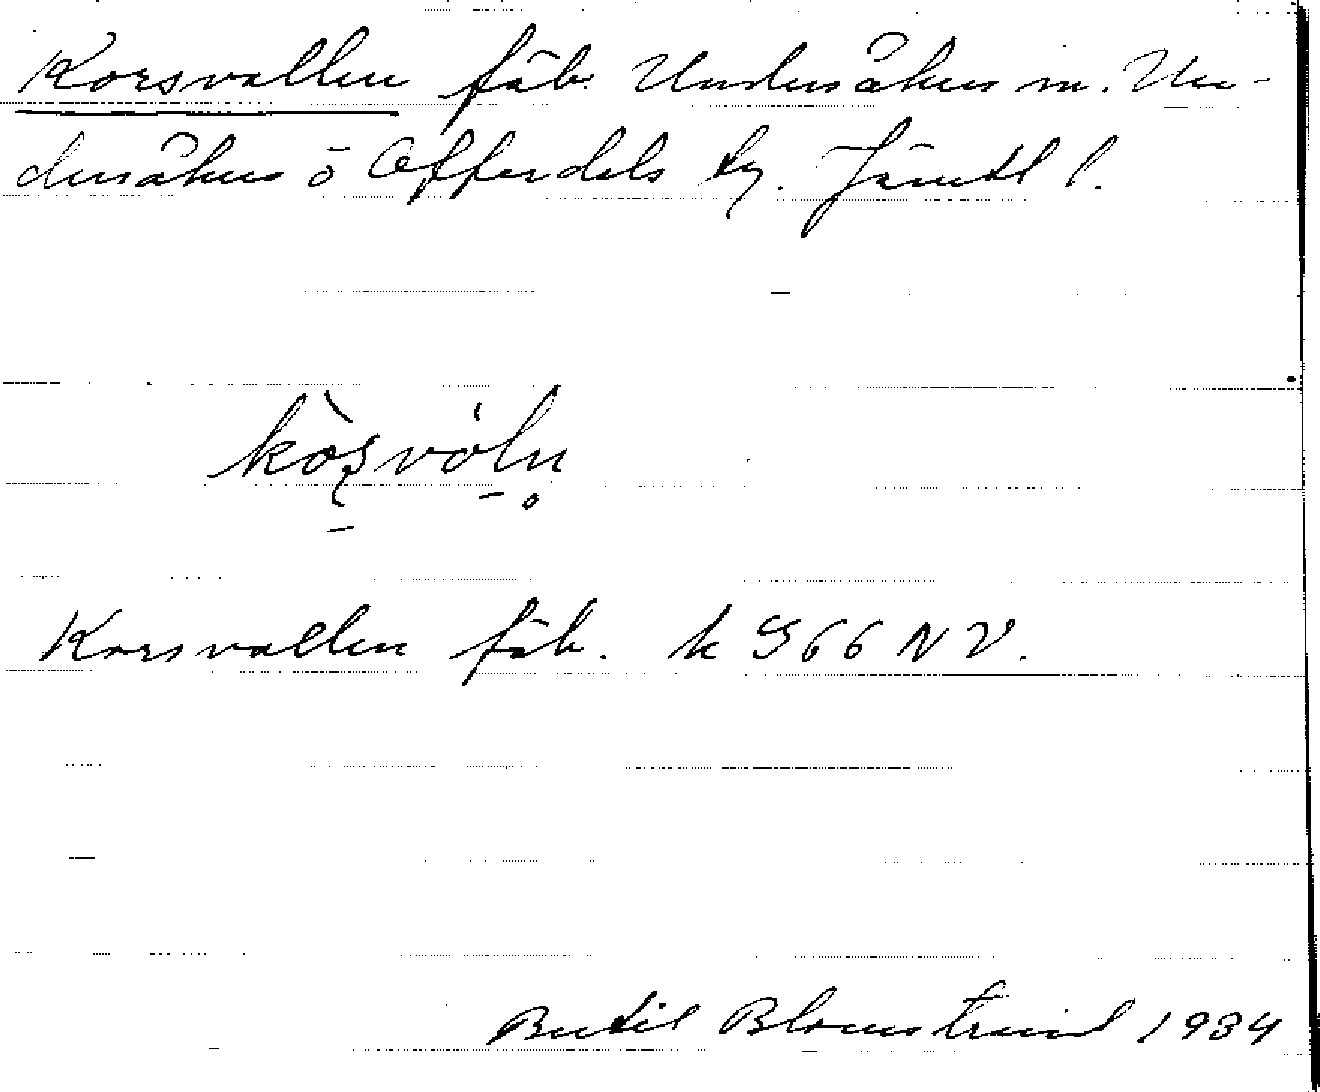 Korsvallen fäb. Undersåkers sn. Un-
dersåkers o Offerdals tg. Jämtl l.
kòʂvóln̥
Korsvallen fäb. k G66 NV.
Bertil Blomstrand 1934